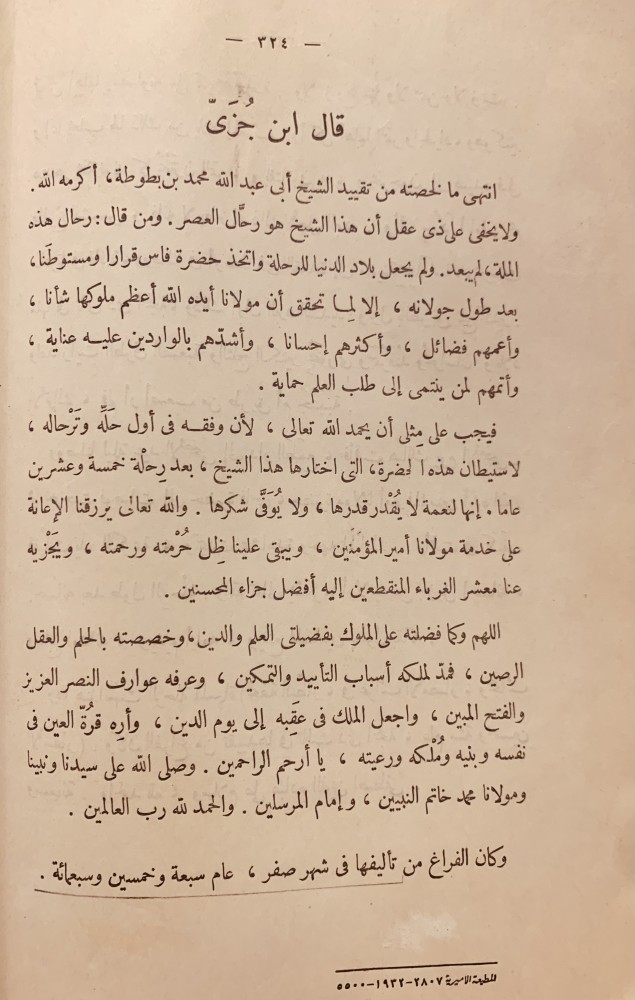 — ٣٢٤ —
قال ابن جُزَىّ
انتهى ما لخصته من تقييد الشيخ أبى عبد الله محمد بن بطوطة، أكرمه الله.
ولا يخفى على ذى عقل أن هذا الشيخ هو رحَّال العصر. ومن قال: رحال هذه
الملة، لم يبعد. ولم يجعل بلاد الدنيا للرحلة واتخذ حضرة فاس قرارا ومستوطَنا،
بعد طول جولانه، إلا لِمــا تحقق أن مولانا أيده الله أعظم ملوكها شأنا،
وأعمهم فضائل، وأكثرهم إحسانا، وأشدّهم بالواردين عليــه عناية،
وأتمهم لمن ينتمى إلى طلب العلم حماية.
فيجب على مِثلى أن يحمد الله تعالى، لأن وفقــه فى أول حَلِّه وتَرْحاله،
لاستيطان هذه الحضرة، التى اختارها هذا الشيخ، بعد رِحلْة خمسة وعشرين
عاما. إنها لنعمة لا يُقْدر قدرها، ولا يُوَفَّى شكرها. والله تعالى يرزقنا الإعانة
على خدمة مولانا أمير المؤمنين، ويبقى علينا ظِل حُرْمته ورحمته، ويَجْزيه
عنا معشر الغرباء المنقطعين إليه أفضل جزاء المحسنين.
اللهم وكما فضلته على الملوك بفضيلتى العلم والدين، وخصصته بالحلم والعقل
الرصين، فمدّ لملكه أسباب التأييد والتمكين، وعرفه عوارف النصر العزيز
والفتح المبين، واجعل الملك فى عَقِبه إلى يوم الدين، وأرِه قرةُّ العين فى
نفسه وبنيه ومُلْكه ورعيته، يا أرحم الراحمين. وصلى الله على سيدنا ونبينا
ومولانا محمد خاتم النبيين، وإمام المرسلين. والحمد لله رب العالمين.
وكان الفراغ من تأليفها فى شهر صفر، عام سبعة وخمسين وسبعمائة.
المطبعة الاميرية ٢٨٠٧-١٩٣٢-٥٥٠٠